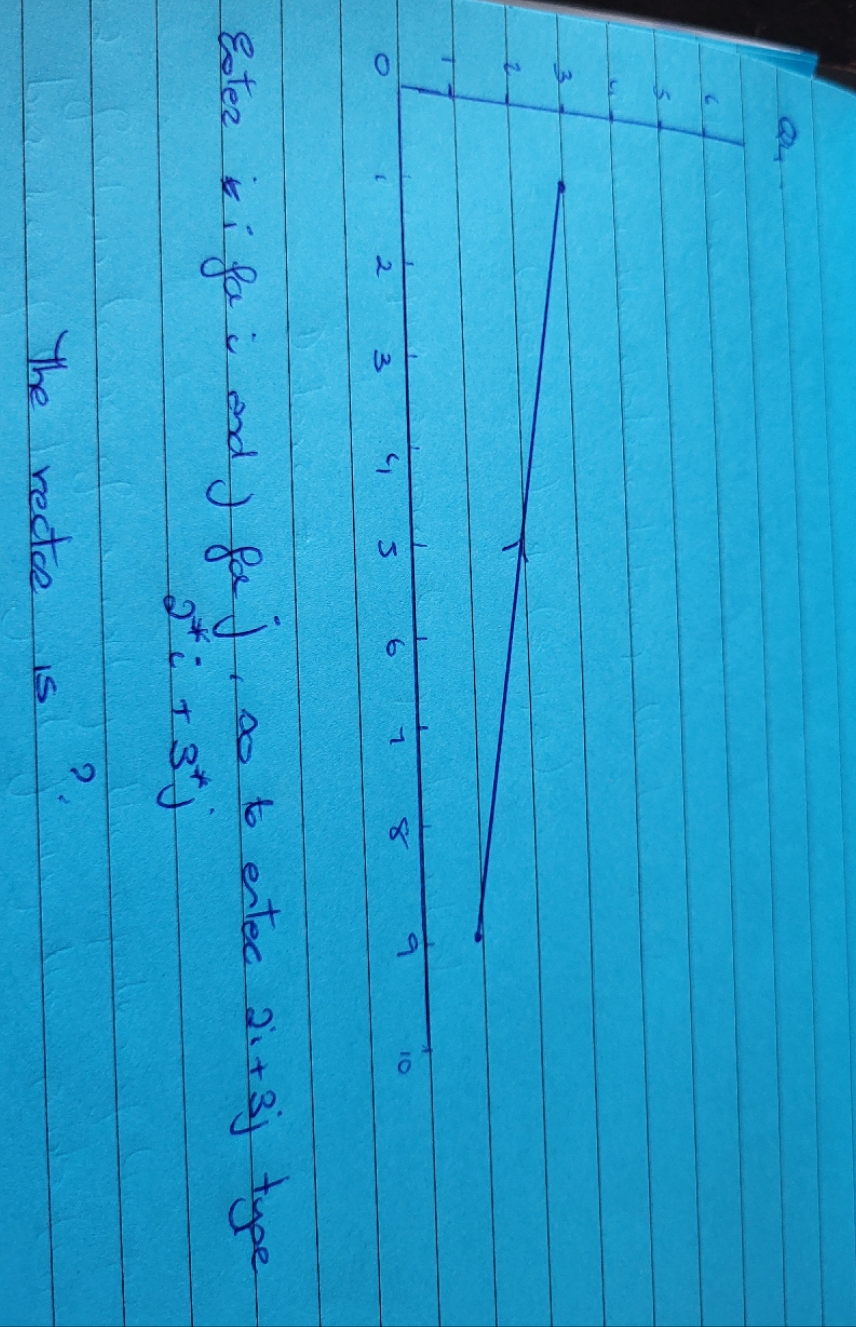 Q4
6
5
4
3
2
1
0 1 2 3 4 5 6 7 8 9 10
Enter i for i and j for j, so to enter 2i + 3j type
2*i + 3*j
The vector is ?